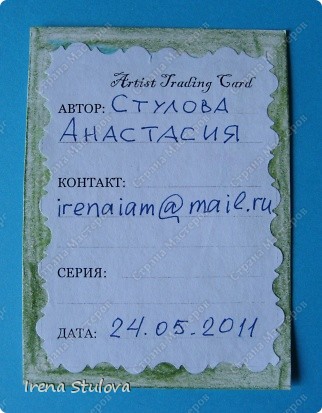 Artist Trading Card
АВТОР: СТУЛОВА
АНАСТАСИЯ
КОНТАКТ:
irenaiam@mail.ru
СЕРИЯ:
ДАТА: 24.05.2011
Irena Stulova